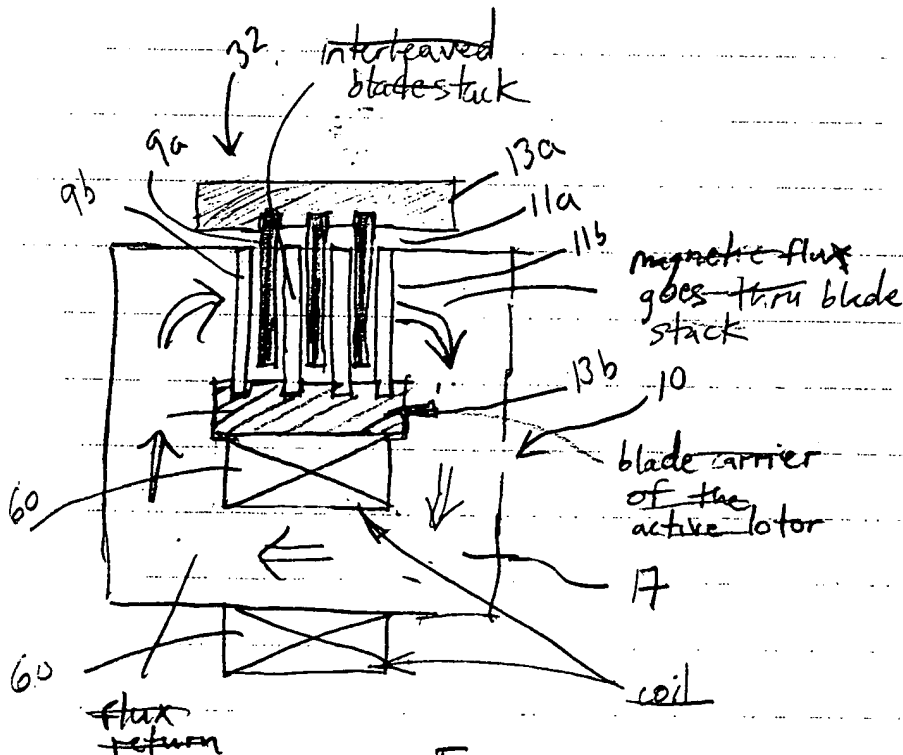 32
interleaved
blade stack
9a
9b
13a
11a
11b
magnetic flux
goes thru blade
stack
13b
10
blade carrier
of the
active lotor
60
17
60
coil
flux
return